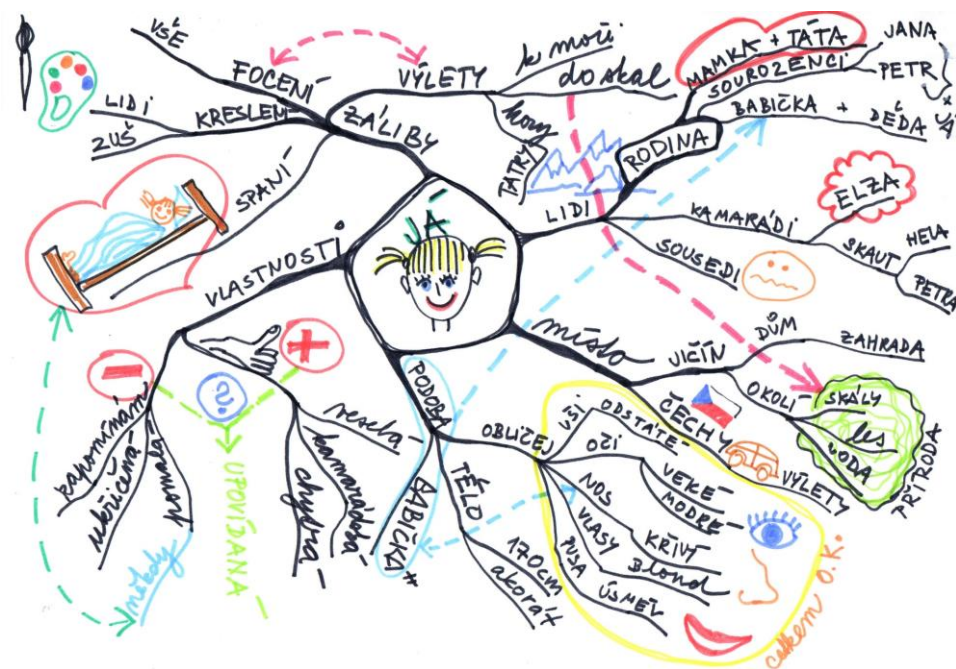 JÁ
ZÁLIBY
FOCENÍ
VŠE
KRESLENÍ
LIDI
ZUŠ
SPANÍ
VÝLETY
k moři
do skal
hory
TATRY
LIDI
RODINA
MAMKA + TÁTA
SOUROZENCI
JANA
PETR
BABIČKA +
DĚDA
KAMARÁDI
ELZA
SKAUT
HELA
PETRA
SOUSEDI
místo
JIČÍN
DŮM
ZAHRADA
OKOLÍ
SKÁLY
les
VODA
PŘÍRODA
ČECHY
VÝLETY
PODOBA
BABIČKA
TĚLO
170 cm
akorát
OBLIČEJ
UŠI
ODSTÁTÉ
OČI
VELKÉ
MODRÉ
NOS
KŘIVÝ
VLASY
Blond
PUSA
ÚSMĚV
celkem O.K.
VLASTNOSTI
+
veselá
kamarádská
chytrá
-
zapomínám
ukřičená
někdy
?
UPOVÍDANÁ